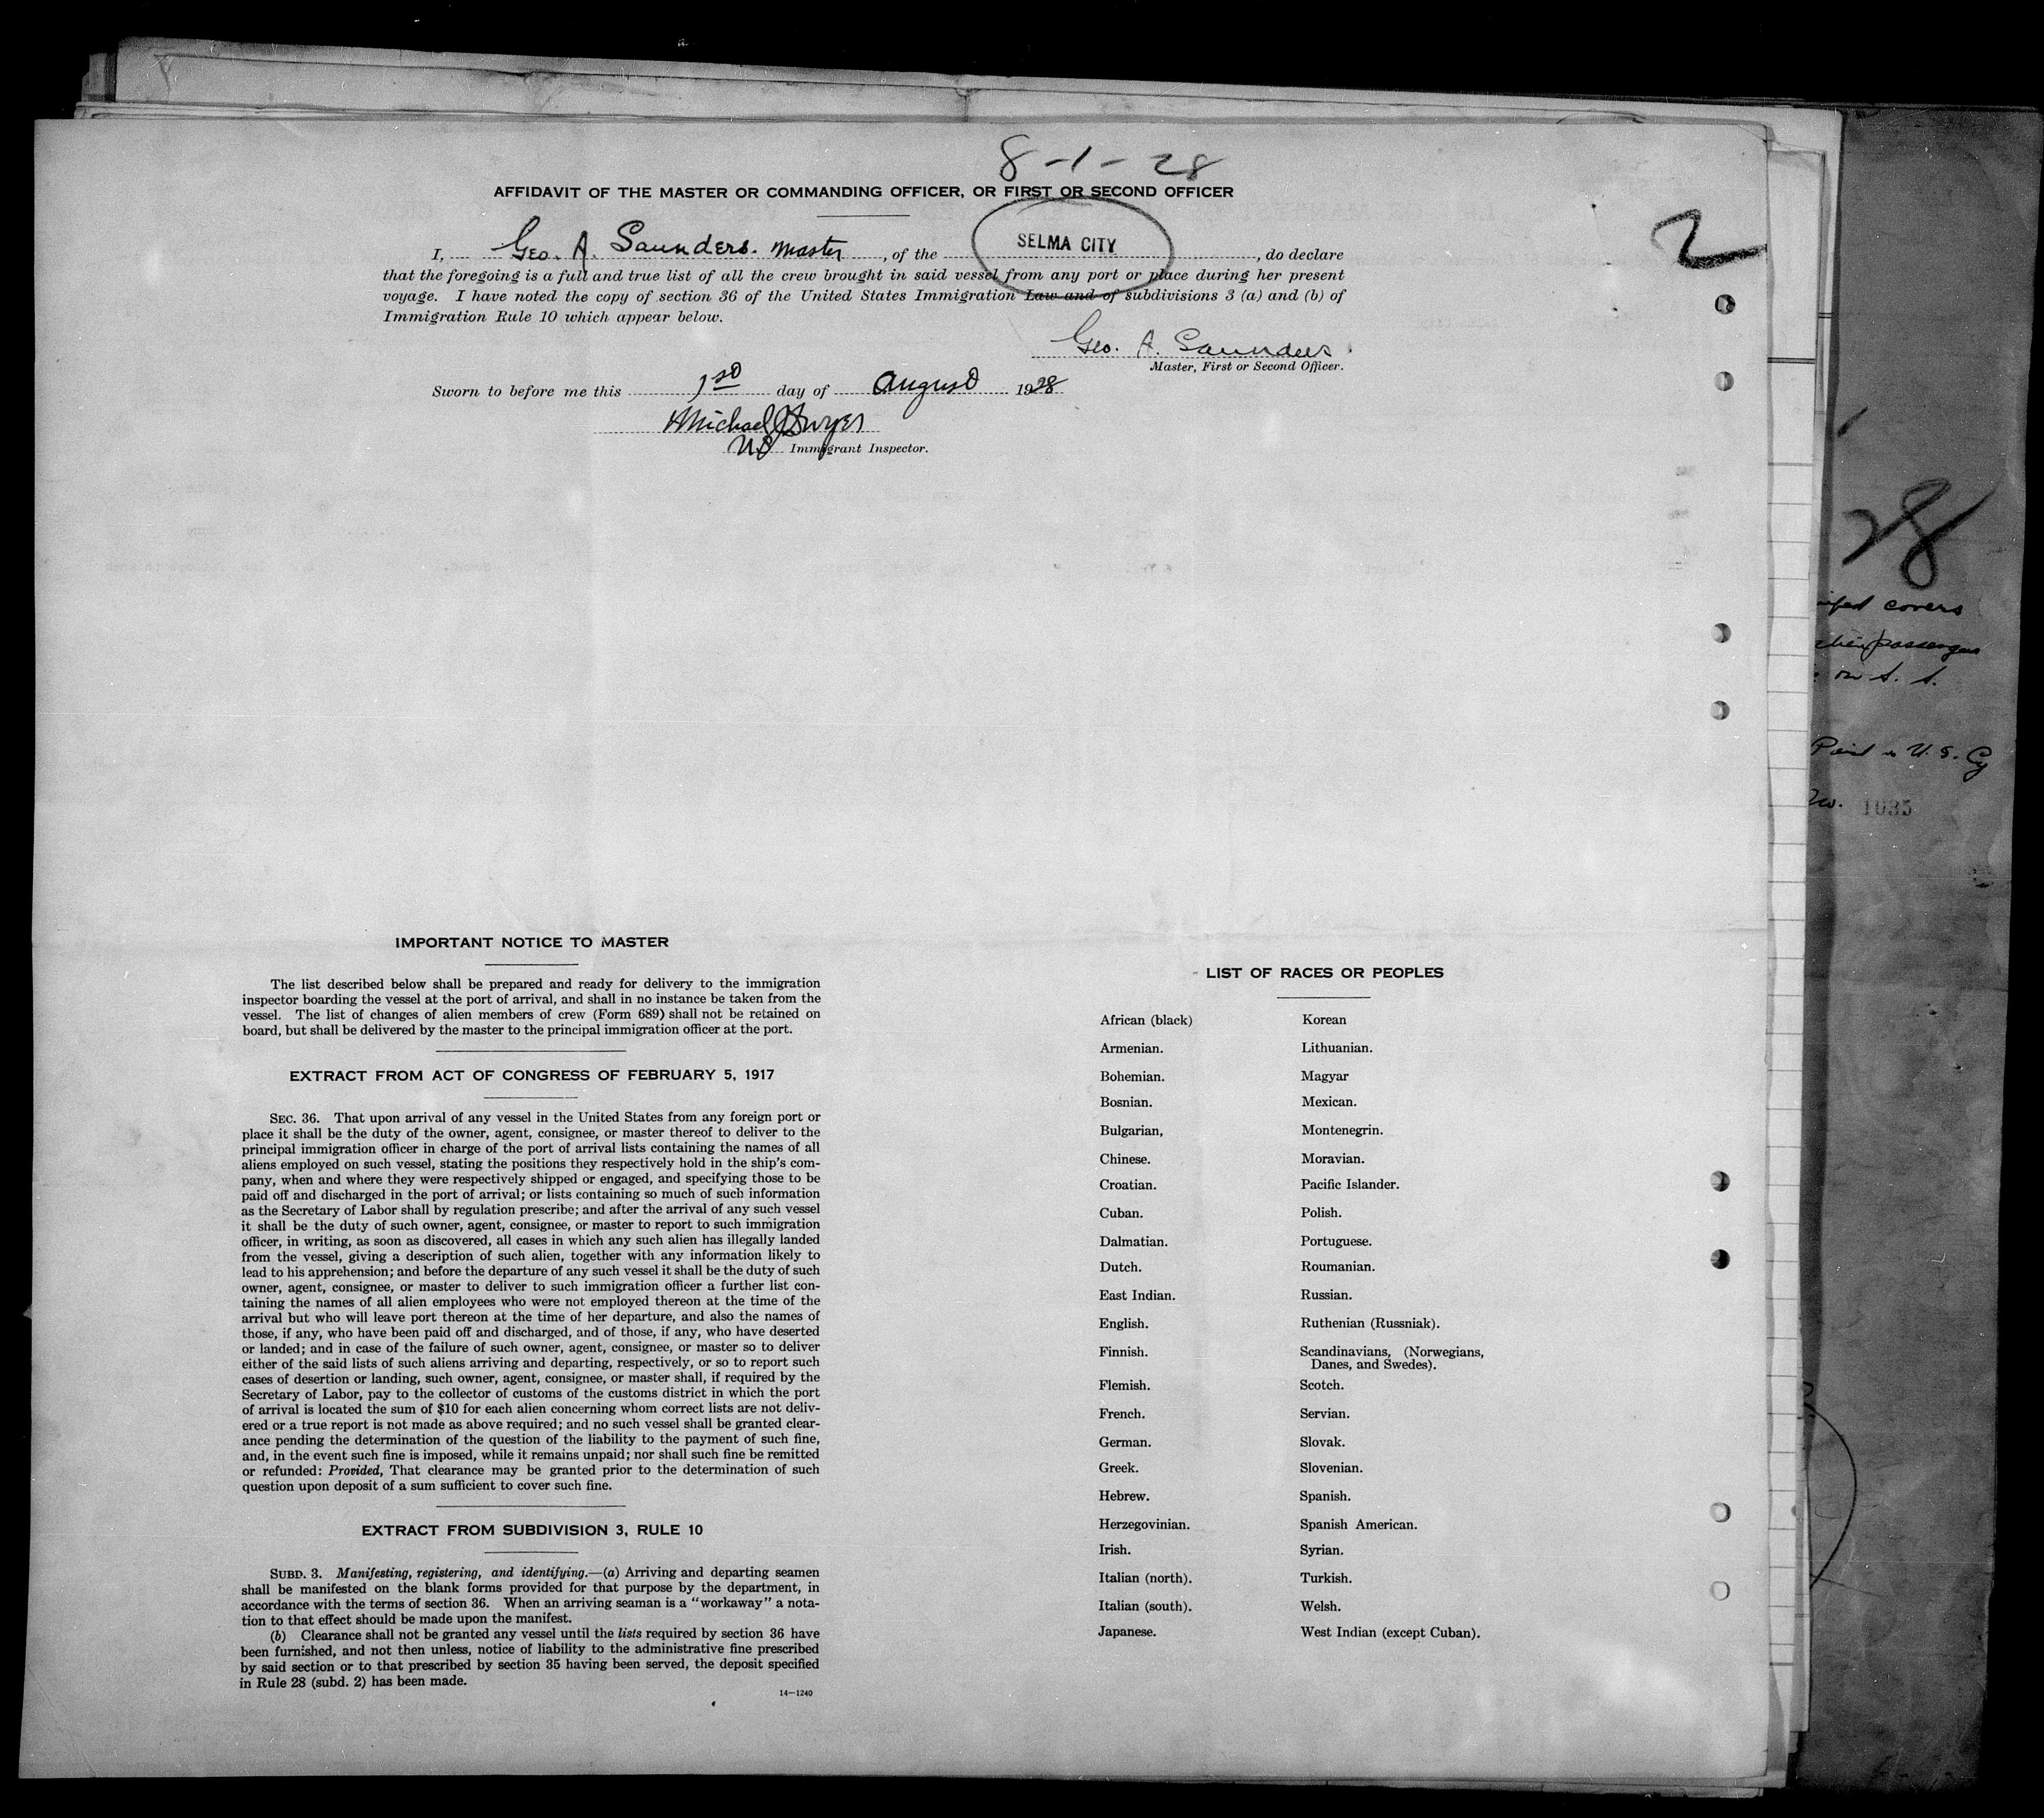 8-1-28
AFFIDAVIT OF THE MASTER OR COMMANDING OFFICER, OR FIRST OR SECOND OFFICER
2
I, Geo. A. Saunders. Master, of the SELMA CITY, do declare
that the foregoing is a full and true list of all the crew brought in said vessel from any port or place during her present
voyage. I have noted the copy of section 36 of the United States Immigration Law and of subdivisions 3 (a) and (b) of
Immigration Rule 10 which appear below.
Geo. A. Saunders.
Master, First or Second Officer.
Sworn to before me this 1st day of August 1928
Michael J Dwyer
US Immigrant Inspector.
28
covers
passengers
on S. S.
Paid in U. S. Cy
No. 1035
IMPORTANT NOTICE TO MASTER
The list described below shall be prepared and ready for delivery to the immigration
inspector boarding the vessel at the port of arrival, and shall in no instance be taken from the
vessel. The list of changes of alien members of crew (Form 689) shall not be retained on
board, but shall be delivered by the master to the principal immigration officer at the port.
EXTRACT FROM ACT OF CONGRESS OF FEBRUARY 5, 1917
SEC. 36. That upon arrival of any vessel in the United States from any foreign port or
place it shall be the duty of the owner, agent, consignee, or master thereof to deliver to the
principal immigration officer in charge of the port of arrival lists containing the names of all
aliens employed on such vessel, stating the positions they respectively hold in the ship's com-
pany, when and where they were respectively shipped or engaged, and specifying those to be
paid off and discharged in the port of arrival; or lists containing so much of such information
as the Secretary of Labor shall by regulation prescribe; and after the arrival of any such vessel
it shall be the duty of such owner, agent, consignee, or master to report to such immigration
officer, in writing, as soon as discovered, all cases in which any such alien has illegally landed
from the vessel, giving a description of such alien, together with any information likely to
lead to his apprehension; and before the departure of any such vessel it shall be the duty of such
owner, agent, consignee, or master to deliver to such immigration officer a further list con-
taining the names of all alien employees who were not employed thereon at the time of the
arrival but who will leave port thereon at the time of her departure, and also the names of
those, if any, who have been paid off and discharged, and of those, if any, who have deserted
or landed; and in case of the failure of such owner, agent, consignee, or master so to deliver
either of the said lists of such aliens arriving and departing, respectively, or so to report such
cases of desertion or landing, such owner, agent, consignee, or master shall, if required by the
Secretary of Labor, pay to the collector of customs of the customs district in which the port
of arrival is located the sum of $10 for each alien concerning whom correct lists are not deliv-
ered or a true report is not made as above required; and no such vessel shall be granted clear-
ance pending the determination of the question of the liability to the payment of such fine,
and, in the event such fine is imposed, while it remains unpaid; nor shall such fine be remitted
or refunded: Provided, That clearance may be granted prior to the determination of such
question upon deposit of a sum sufficient to cover such fine.
EXTRACT FROM SUBDIVISION 3, RULE 10
SUBD. 3. Manifesting, registering, and identifying.—(a) Arriving and departing seamen
shall be manifested on the blank forms provided for that purpose by the department, in
accordance with the terms of section 36. When an arriving seaman is a "workaway" a nota-
tion to that effect should be made upon the manifest.
(b) Clearance shall not be granted any vessel until the lists required by section 36 have
been furnished, and not then unless, notice of liability to the administrative fine prescribed
by said section or to that prescribed by section 35 having been served, the deposit specified
in Rule 28 (subd. 2) has been made.
14—1240
LIST OF RACES OR PEOPLES
African (black)
Armenian.
Bohemian.
Bosnian.
Bulgarian,
Chinese.
Croatian.
Cuban.
Dalmatian.
Dutch.
East Indian.
English.
Finnish.
Flemish.
French.
German.
Greek.
Hebrew.
Herzegovinian.
Irish.
Italian (north).
Italian (south).
Japanese.
Korean
Lithuanian.
Magyar
Mexican.
Montenegrin.
Moravian.
Pacific Islander.
Polish.
Portuguese.
Roumanian.
Russian.
Ruthenian (Russniak).
Scandinavians, (Norwegians,
Danes, and Swedes).
Scotch.
Servian.
Slovak.
Slovenian.
Spanish.
Spanish American.
Syrian.
Turkish.
Welsh.
West Indian (except Cuban).